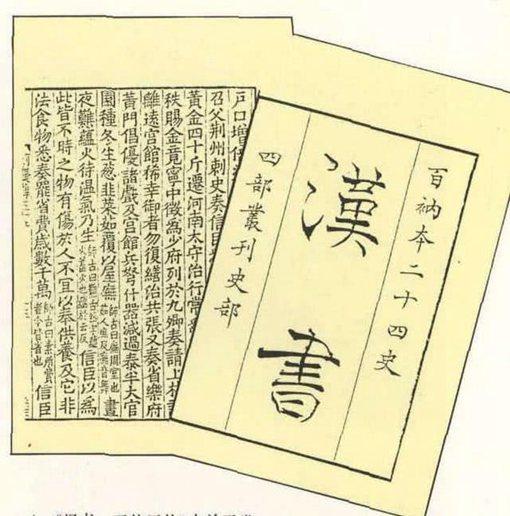 百衲本二十四史
漢書
四部叢刊史部
戶口增倍
召父荆州刺史奏信臣
黃金四十斤遷河南太守治行常
秩賜金竟寧中徵為少府列於九卿奏請上林
離遠宮館稀幸御者勿復繕治共張又奏省樂府
黃門倡優諸戲及宮館兵弩什器減過泰半大官
園種冬生葱韭菜茹覆以屋廡師古曰 晝
夜難蘊火待温氣乃生師古曰 信臣以為
此皆不時之物有傷於人不宜以奉供養及它非
法食物悉奏罷省費歲數千萬師古曰素所費者今皆省也信臣